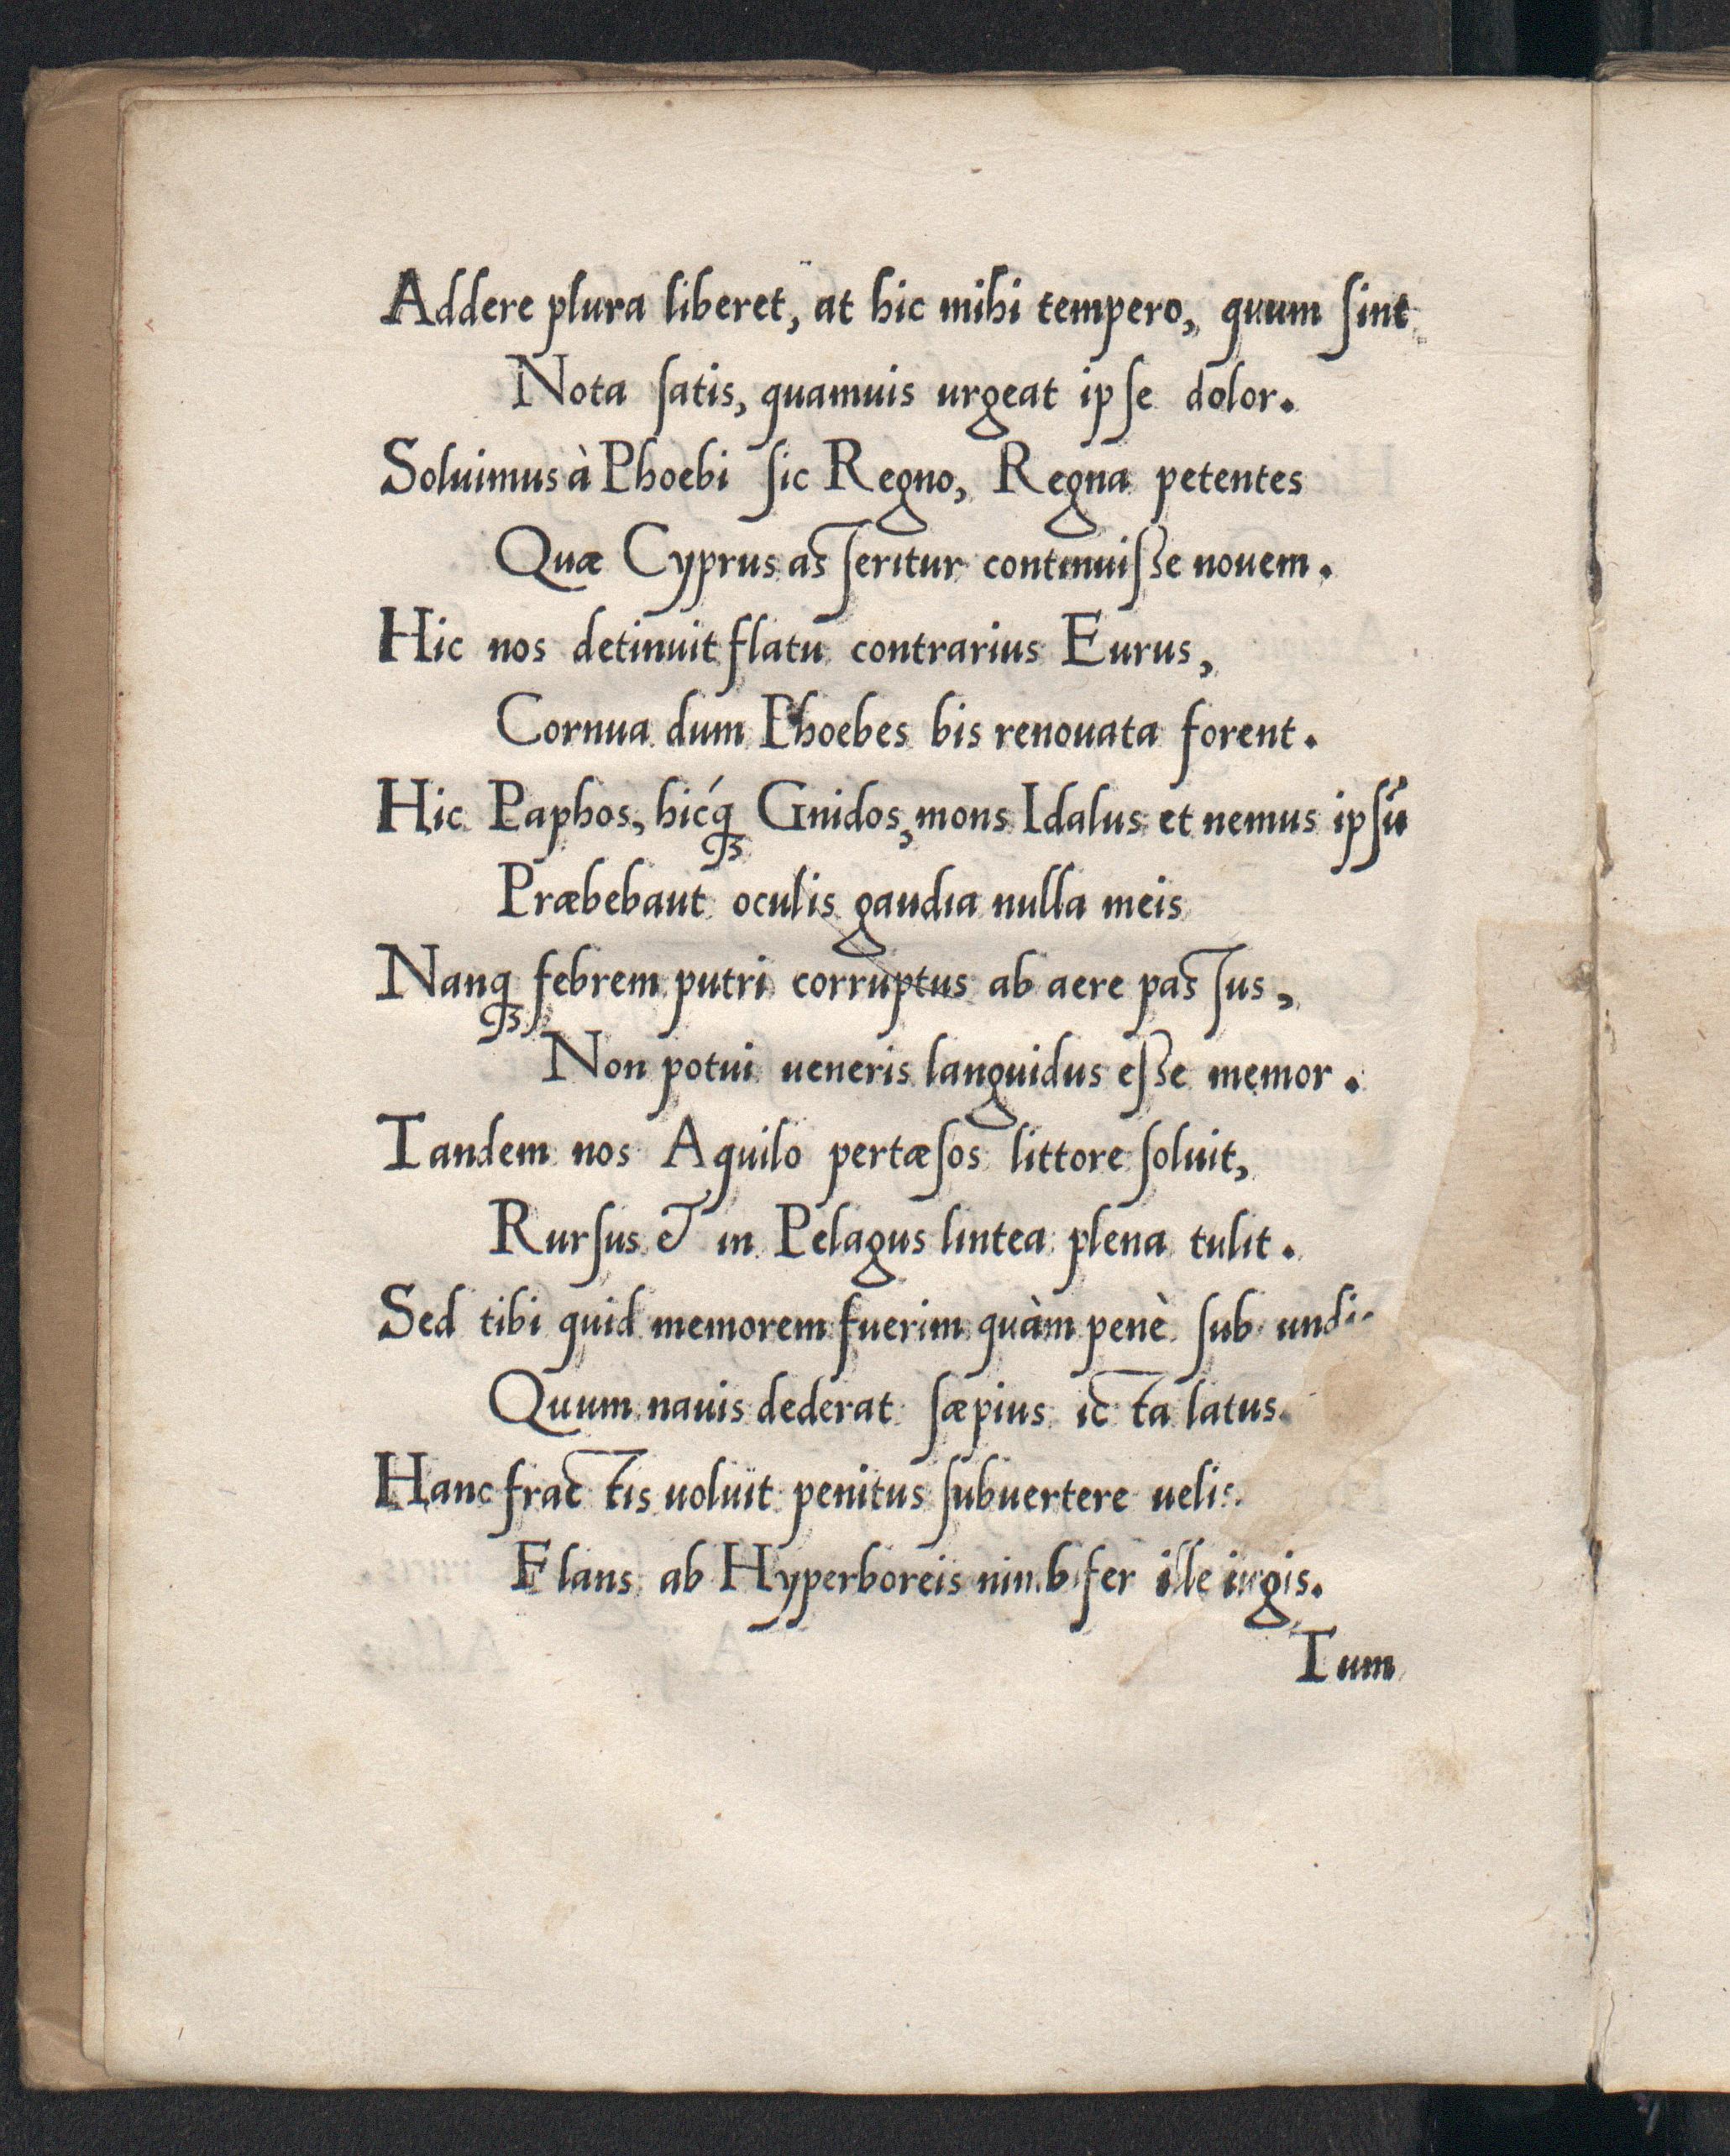 Addere plura liberet, at hic mihi tempero, quum ſint
Nota ſatis, quamuis urgeat ipſe dolor.
Soluimus à Phoebi ſic Regno, Regna petentes
Quæ Cyprus asſeritur continuiſse nouem.
Hic nos detinuit flatu contrarius Eurus,
Cornua dum Phoebes bis renouata forent.
Hic Paphos, hicq́ꝫ Gnidos, mons Idalus et nemus ipſū
Præbebaut oculis gaudia nulla meis
Nanqꝫ febrem putri corruptus ab aere pasſus,
Non potui ueneris languidus eſse memor.
Tandem nos Aquilo pertæſos littore ſoluit,
Rurſus & in Pelagus lintea plena tulit.
Sed tibi quid memorem fuerim quàm penè ſub
Quum nauis dederat ſæpius icta latus.
Hanc fractis uoluit penitus ſubuertere uelis.
Flans ab Hyperboreis nimbifer ille iugis.
Tum